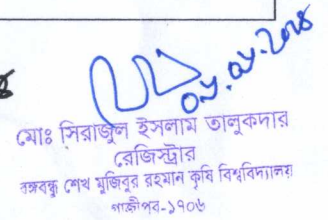 মোঃ সিরাজুল ইসলাম তালুকদার
রেজিস্ট্রার
বঙ্গবন্ধু শেখ মুজিবুর রহমান কৃষি বিশ্ববিদ্যালয়
গাজীপুর-১৭০৬